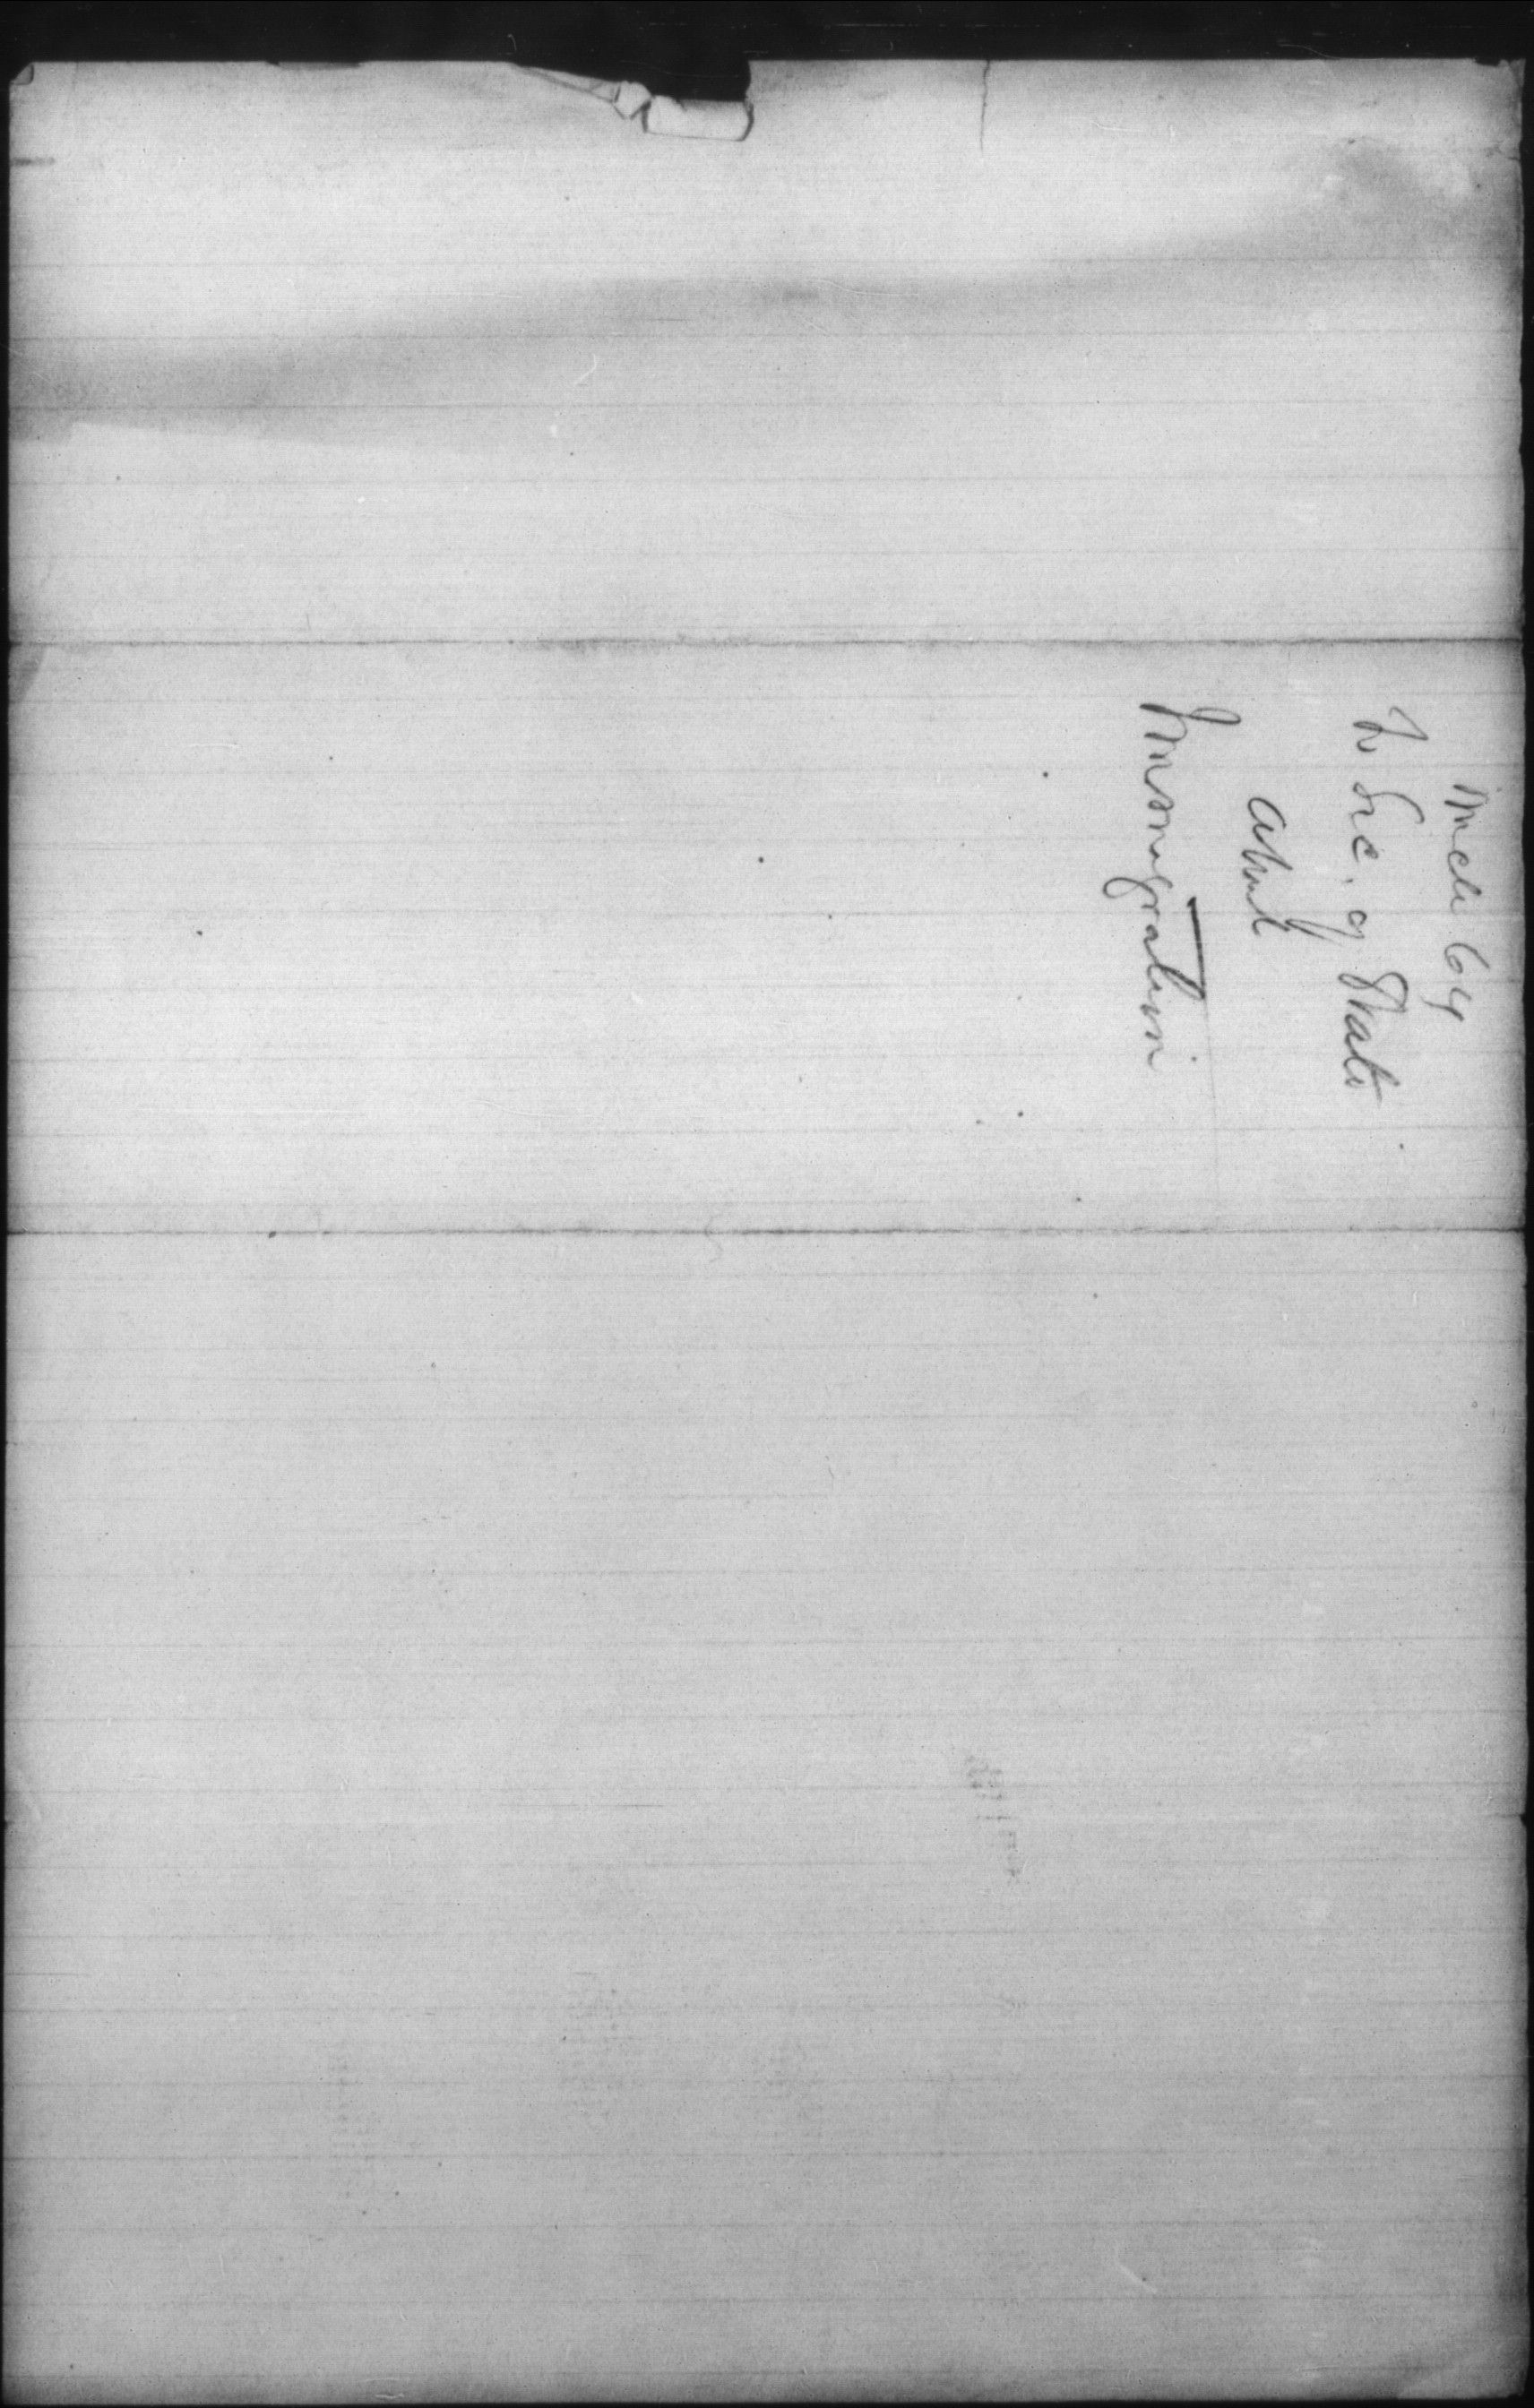 Mch 64
To Sec. of State
about
Immigration